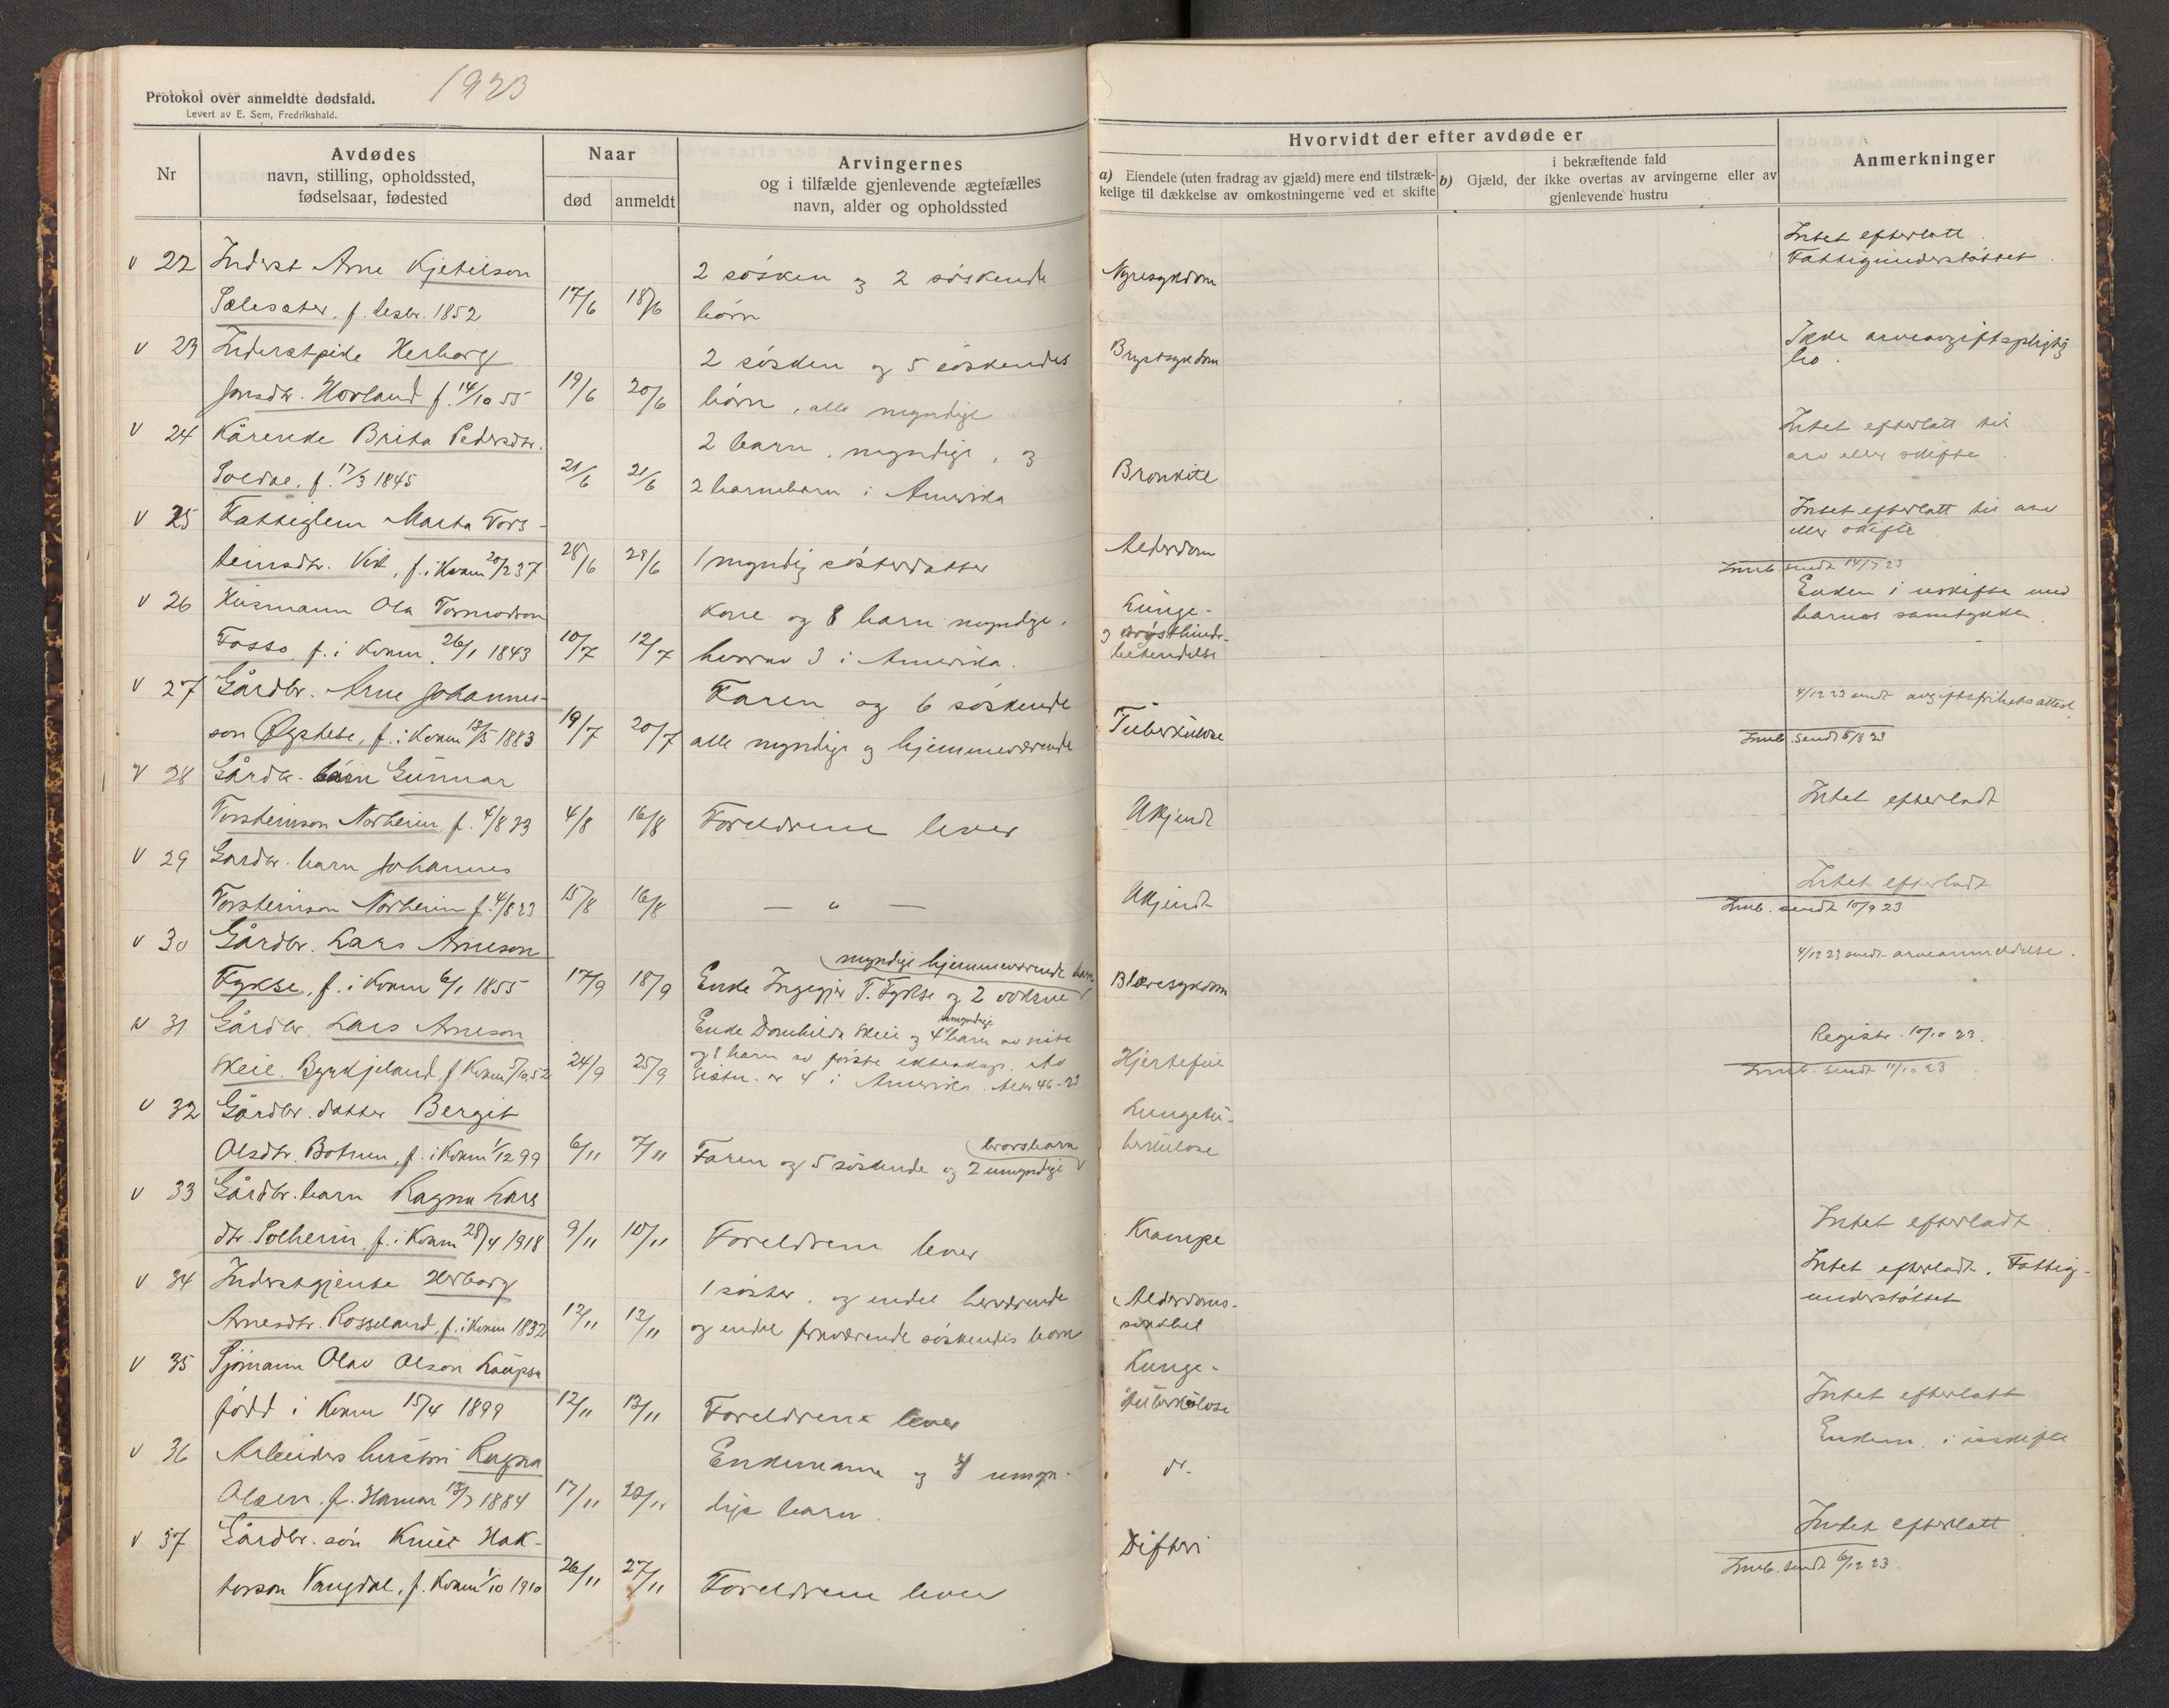 1923
Protokol over anmeldte dødsfald.
Levert av E. Sem, Fredrikshald.
Nr
Avdødes
navn, stilling, opholdssted,
fødselsaar, fødested
Naar
død
anmeldt
Arvingernes
og i tilfælde gjenlevende ægtefælles
navn, alder og opholdssted
Hvorvidt der efter avdøde er
a) Eiendele (uten fradrag av gjæld) mere end tilstræk-
kelige til dækkelse av omkostningerne ved et skifte
i bekræftende fald
b) Gjæld, der ikke overtas av arvingerne eller av
gjenlevende hustru
Anmerkninger
v 22 Inderst Arne Kjetilson 2 søsken og 2 søskende Nyresygdom Intet efterlatt. Fattigunderstøttet.
f. 1852 17/6 18/6 børn
v 23 Inderstpike Herborg 2 søsken og 5 søskendes Brystsygdom Ikke arveavgiftspligtig
Jonsdtr. Hovland f. 14/10 55 19/6 20/6 børn, alle myndige bo.
v 24 Kårenke Brita Pedersdtr. 2 barn, myndige, og Intet efterlatt til
Soldal, f. 17/3 1845 21/6 21/6 2 barnebarn i Amerika Bronkite arv eller skifte.
v 25 Fattiglem Marta Tors- Intet efterlatt til arv eller skifte
teinsdtr. Vik, f. i Kvam 20/2 37 28/6 29/6 1 myndig søsterdatter Alderdom Innb. sendt 14/7 23
v 26 Husmann Ola Tormodson Kone og 8 barn myndige, Lunge- Enken i uskifte med
Fosso, f. i Kvam 26/1 1843 10/7 12/7 hvorav 3 i Amerika. og brysthinde- barnas samtykke.
betendelse
v 27 Gårdbr. Arne Johannes- Faren og 6 søskende 4/12 23 sendt avgiftsfrihetsattest.
son Øystese, f. i Kvam 13/5 1883 19/7 20/7 alle myndige og hjemmeværende Tuberkulose Innb. sendt 8/8 23
v 28 Gårdbr. barn Gunnar Intet efterladt
Torsteinson Norheim f. 4/8 23 4/8 16/8 Foreldrene lever Ukjendt
v 29 Gardbr. barn Johannes Intet efterladt
Torsteinson Norheim f. 4/8 23 15/8 16/8 — " — Ukjendt Innb. sendt 10/9 23
v 30 Gårdbr. Lars Arneson myndige hjemmeværende barn 4/12 23 sendt arveanmeldelse.
Fykse, f. i Kvam 6/1 1855 17/9 18/9 Enke Ingegjer T. Fykse og 2 voksne Blæresygdom
v 31 Gårdbr. Lars Arneson Enke Domhilda Skeie og 4 umyndige barn av siste Registr. 10/10 23.
Skeie, Byrkjeland, f. Kvam 5/10 52 24/9 25/9 og 8 barn av første ekteskap. Av Hjertefeil Innb. sendt 11/10 23
sistn. er 4 i Amerika. Alder 46-23
v 32 Gårdbr. datter Bergit Lungetu-
Olsdtr. Botnen, f. i Kvam 1/12 99 6/11 7/11 Faren og 5 søskende og 2 umyndige brorsbarn berkulose
v 33 Gårdbr. barn Ragna Lars
dtr. Solheim, f. i Kvam 28/4 1918 9/11 10/11 Foreldrene lever Krampe Intet efterladt.
v 34 Inderstgjente Herborg 1 søster, og endel herværende Alderdoms- Intet efterladt. Fattig-
Arnesdtr. Rosseland, f. i Kvam 1832 12/11 12/11 og endel fraværende søskendes born understøttet
v 35 Sjømann Olav Olson Laupsa Lunge-
født i Kvam 15/4 1899 12/11 13/11 Foreldrene lever tuberkulose Intet efterlatt
v 36 Arbeiders hustru Ragna Enkemann og 4 umyn- do. Enkem. i uskifte
Olsen. f. Hamar 13/7 1884 17/11 20/11 dige barn.
v 37 Gårdbr. søn Knut Hak- Difteri Intet efterlatt.
torson Vangdal, f. Kvam 1/10 1910 26/11 27/11 Foreldrene lever Innb. sendt 6/12 23.